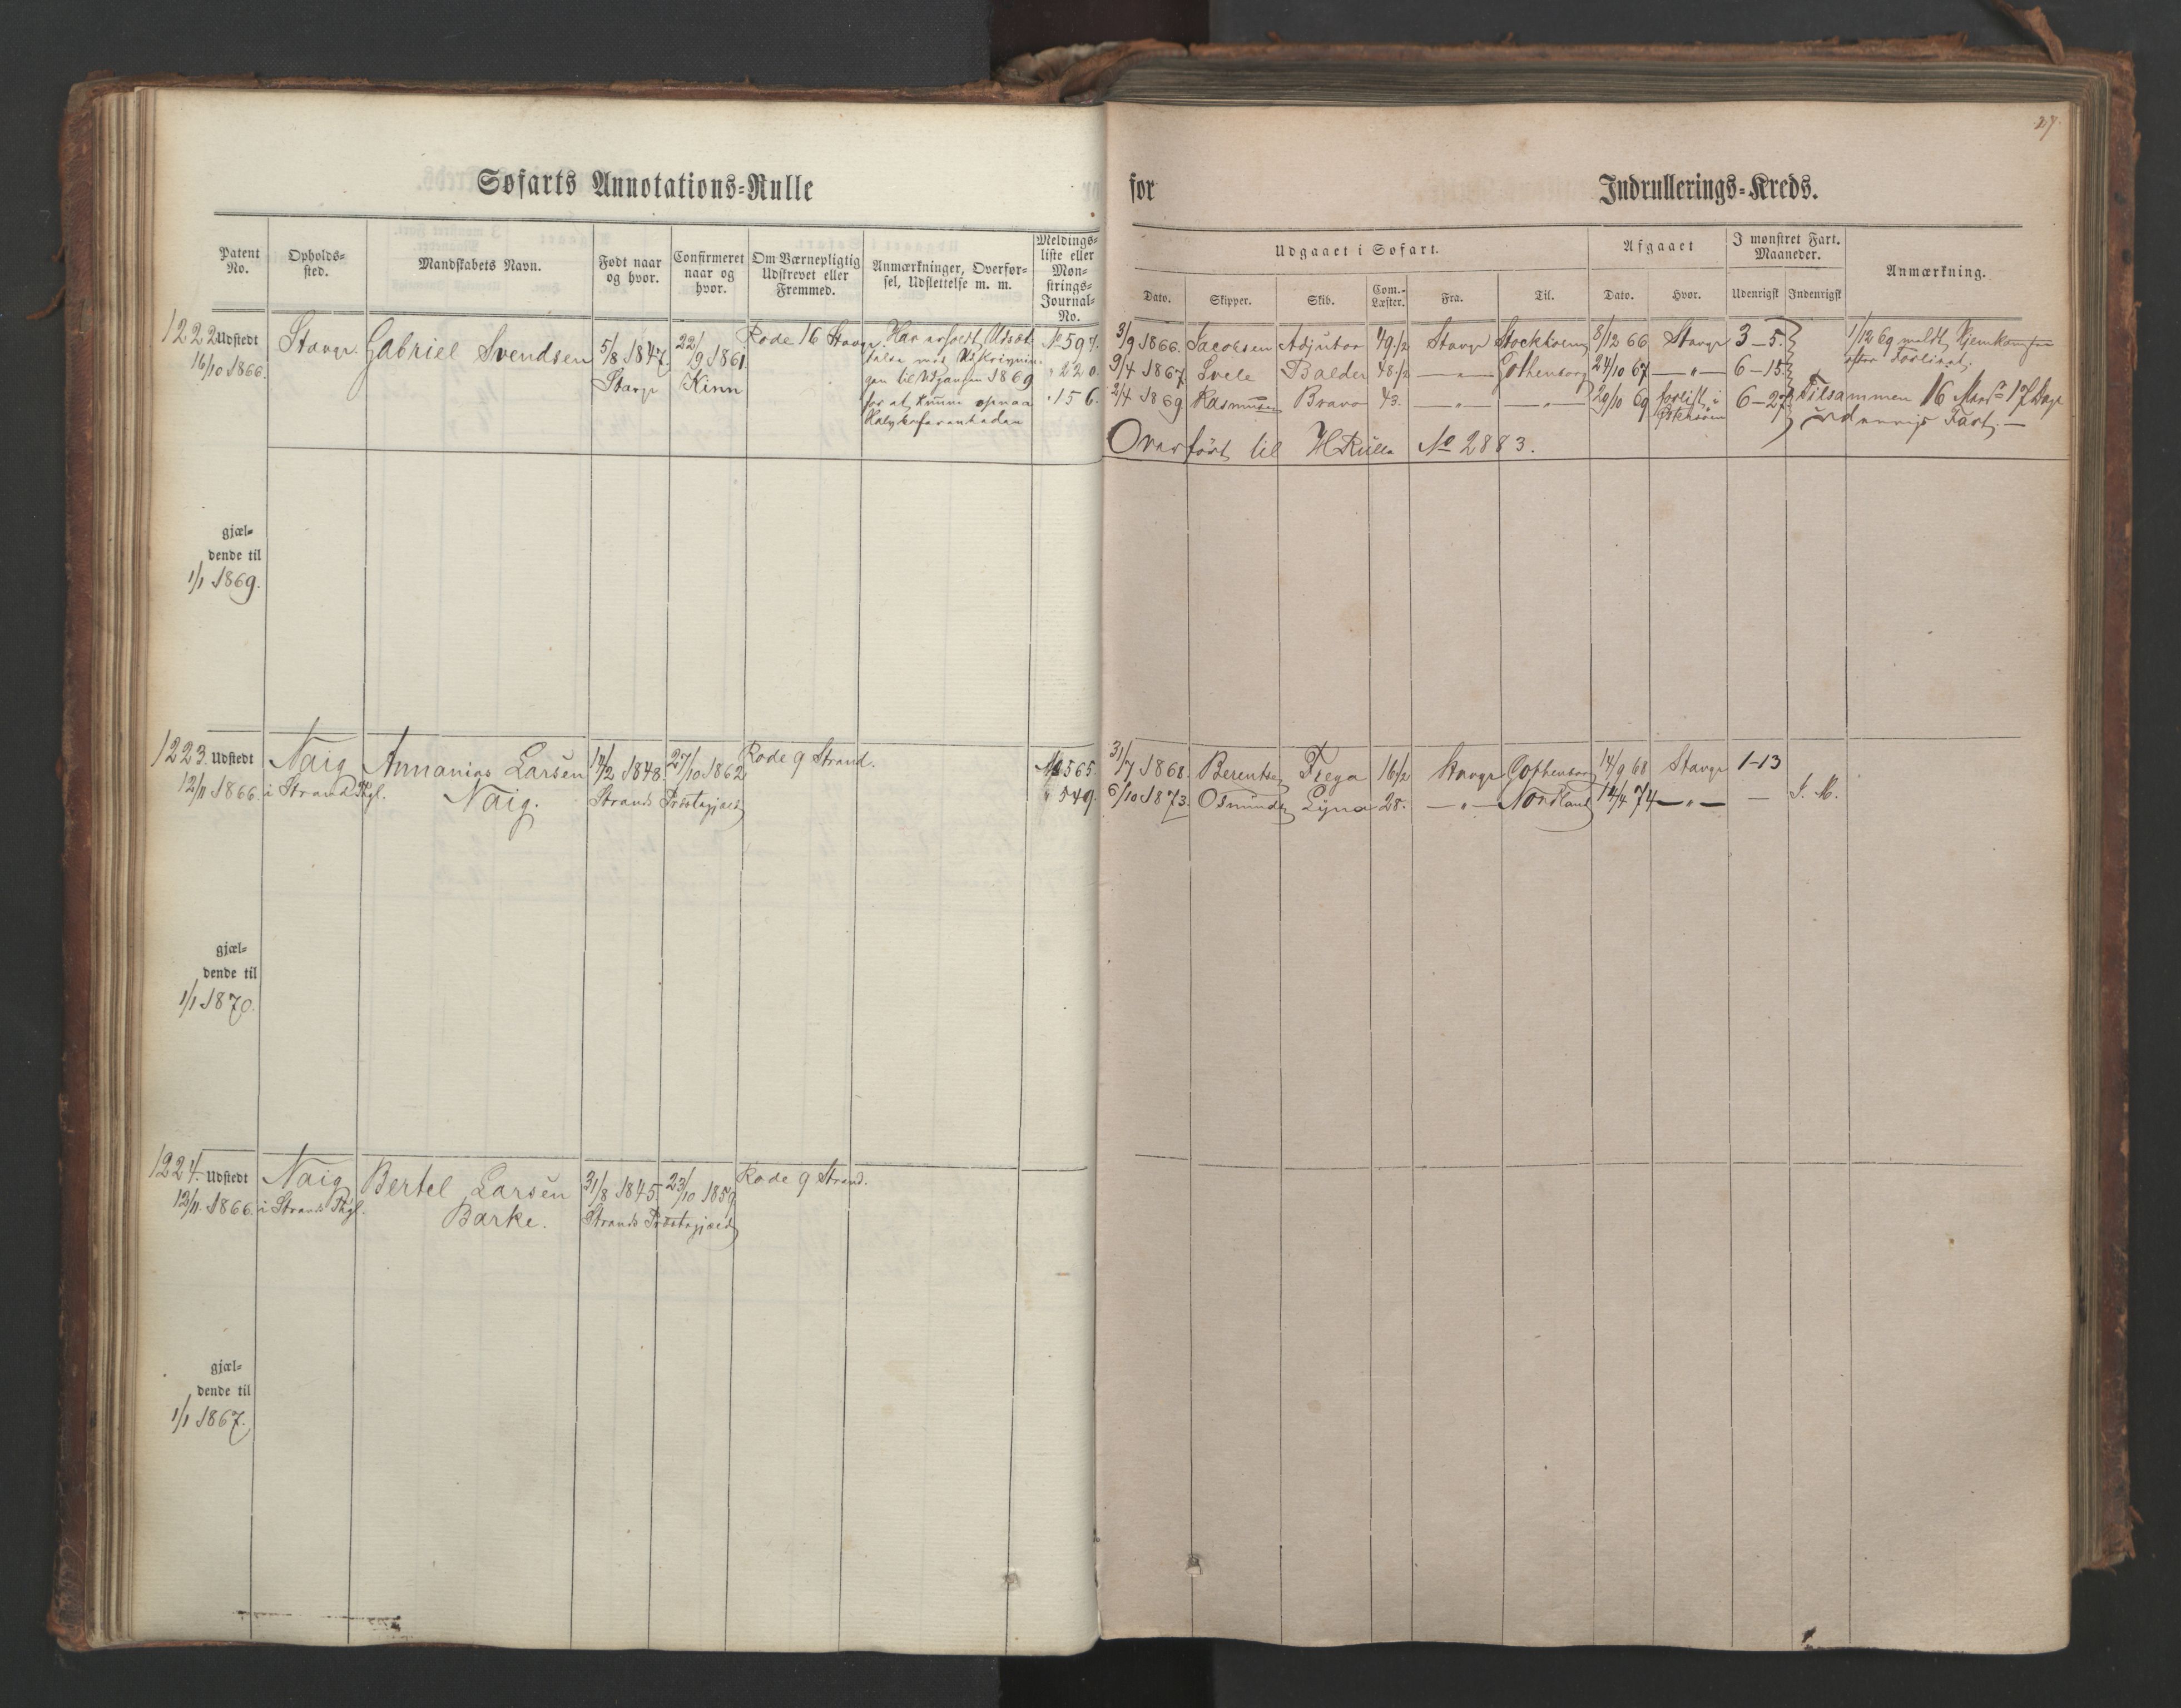 27.
Søfarts Annotations-Rulle
for
Indrullerings-Kreds.
Patent No.
Opholds-sted.
Mandskabets Navn.
Født naar og hvor.
Confirmeret naar og hvor.
Om Værnepligtig Udskrevet eller Fremmed.
Anmærkninger, Overfør-sel, Udslettelse m. m.
Meldings-liste eller Møn-strings-Journal-No.
Udgaaet i Søfart.
Afgaaet
I mønstret Fart. Maaneder.
Anmærkning.
Dato.
Skipper.
Skib.
Com.-Læster.
Fra.
Til.
Dato.
Hvor.
Udenrigsk
Indenrigsk
1222 Udstedt
16/10 1866.
Stavgr.
Gabriel Svendsen
5/8 1847
Stavgr
22/9 1861.
Kinn
Rode 16 Stavgr.
Har erholdt Udsæt-
telse med Udskrivnin-
gen til Udgangen 1869
for at kunne opnaa
No 597.
" 220.
" 156.
3/9 1866. Jacobsen Adjutor 49 1/2 Stavgr Stockholm 8/12 66 Stavgr 3-5.
9/4 1867 Svele Balder 48 1/2 — " — Gothenborg 24/10 67 — " — 6-15
2/4 1869 Rasmussen Bravo 43. — " — — " — 29/10 69 forlist i Østersøen 6-27
1/12 69 meldt Hjemkommen
efter Forliset.
Tilsammen 16 Mand 17 Dage
udenrigs Fart. —
Overført til HRulle No 2883.
gjæl-
dende til
1/1 1869.
1223. Udstedt
12/11 1866.
Naig
i Strand Phgl.
Annanias Larsen
Naig.
14/2 1848. 27/10 1862
Strands Præstegjæld
Rode 9 Strand.
No 565.
" 549.
31/7 1868. Berentsen Freya 16 1/2 Stavgr Gothenborg 14/9 68 Stavgr 1-13
6/10 1873. Osmundsen Lyna 28. — " — Nordland 14/4 74 — " — — I. M.
gjæl-
dende til
1/1 1870.
1224. Udstedt
12/11 1866.
Naig
i Strands Phgl.
Bertel Larsen
Barke.
31/8 1845. 23/10 1859
Strands Præstegjæld
Rode 9 Strand.
gjæl-
dende til
1/1 1867.